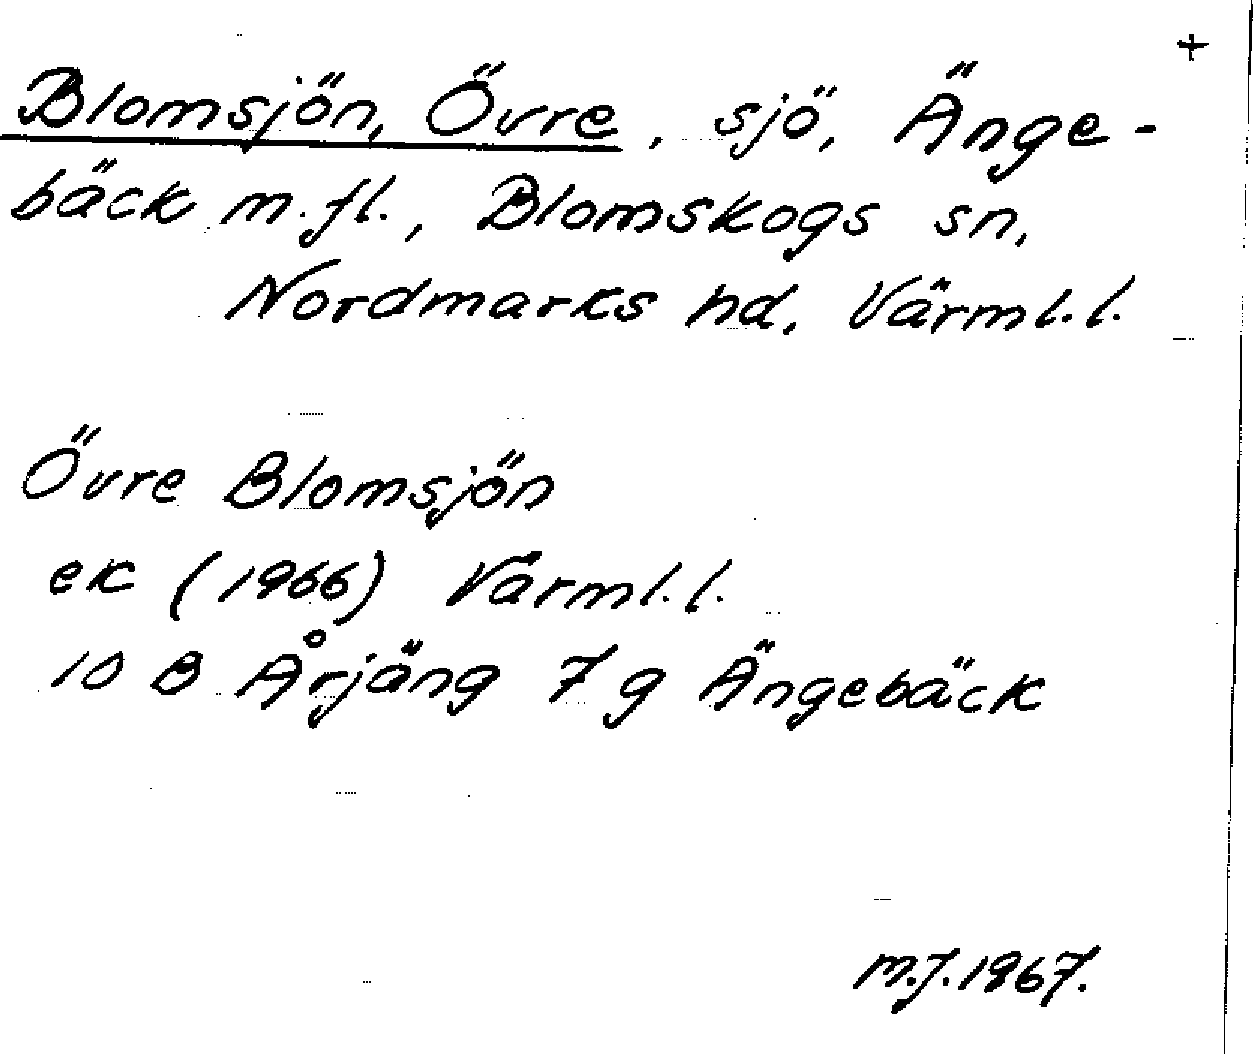 +
Blomsjön, Övre, sjö, Änge-
bäck m.fl., Blomskogs sn,
Nordmarks hd, Värml.l.
Övre Blomsjön
ek (1966) Värml.l.
10 B Årjäng 7 g Ängebäck
M.J. 1967.